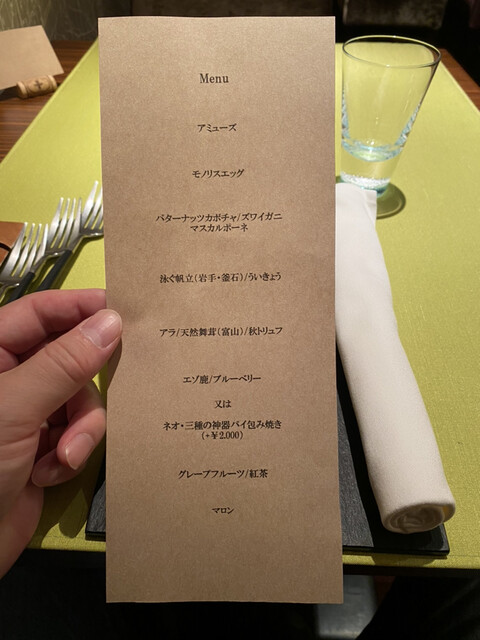 Menu
アミューズ
モノリスエッグ
バターナッツカボチャ/ズワイガニ
マスカルポーネ
泳ぐ帆立(岩手・釜石)/ういきょう
アラ/天然舞茸(富山)/秋トリュフ
エゾ鹿/ブルーベリー
又は
ネオ・三種の神器パイ包み焼き
(+¥2,000)
グレープフルーツ/紅茶
マロン